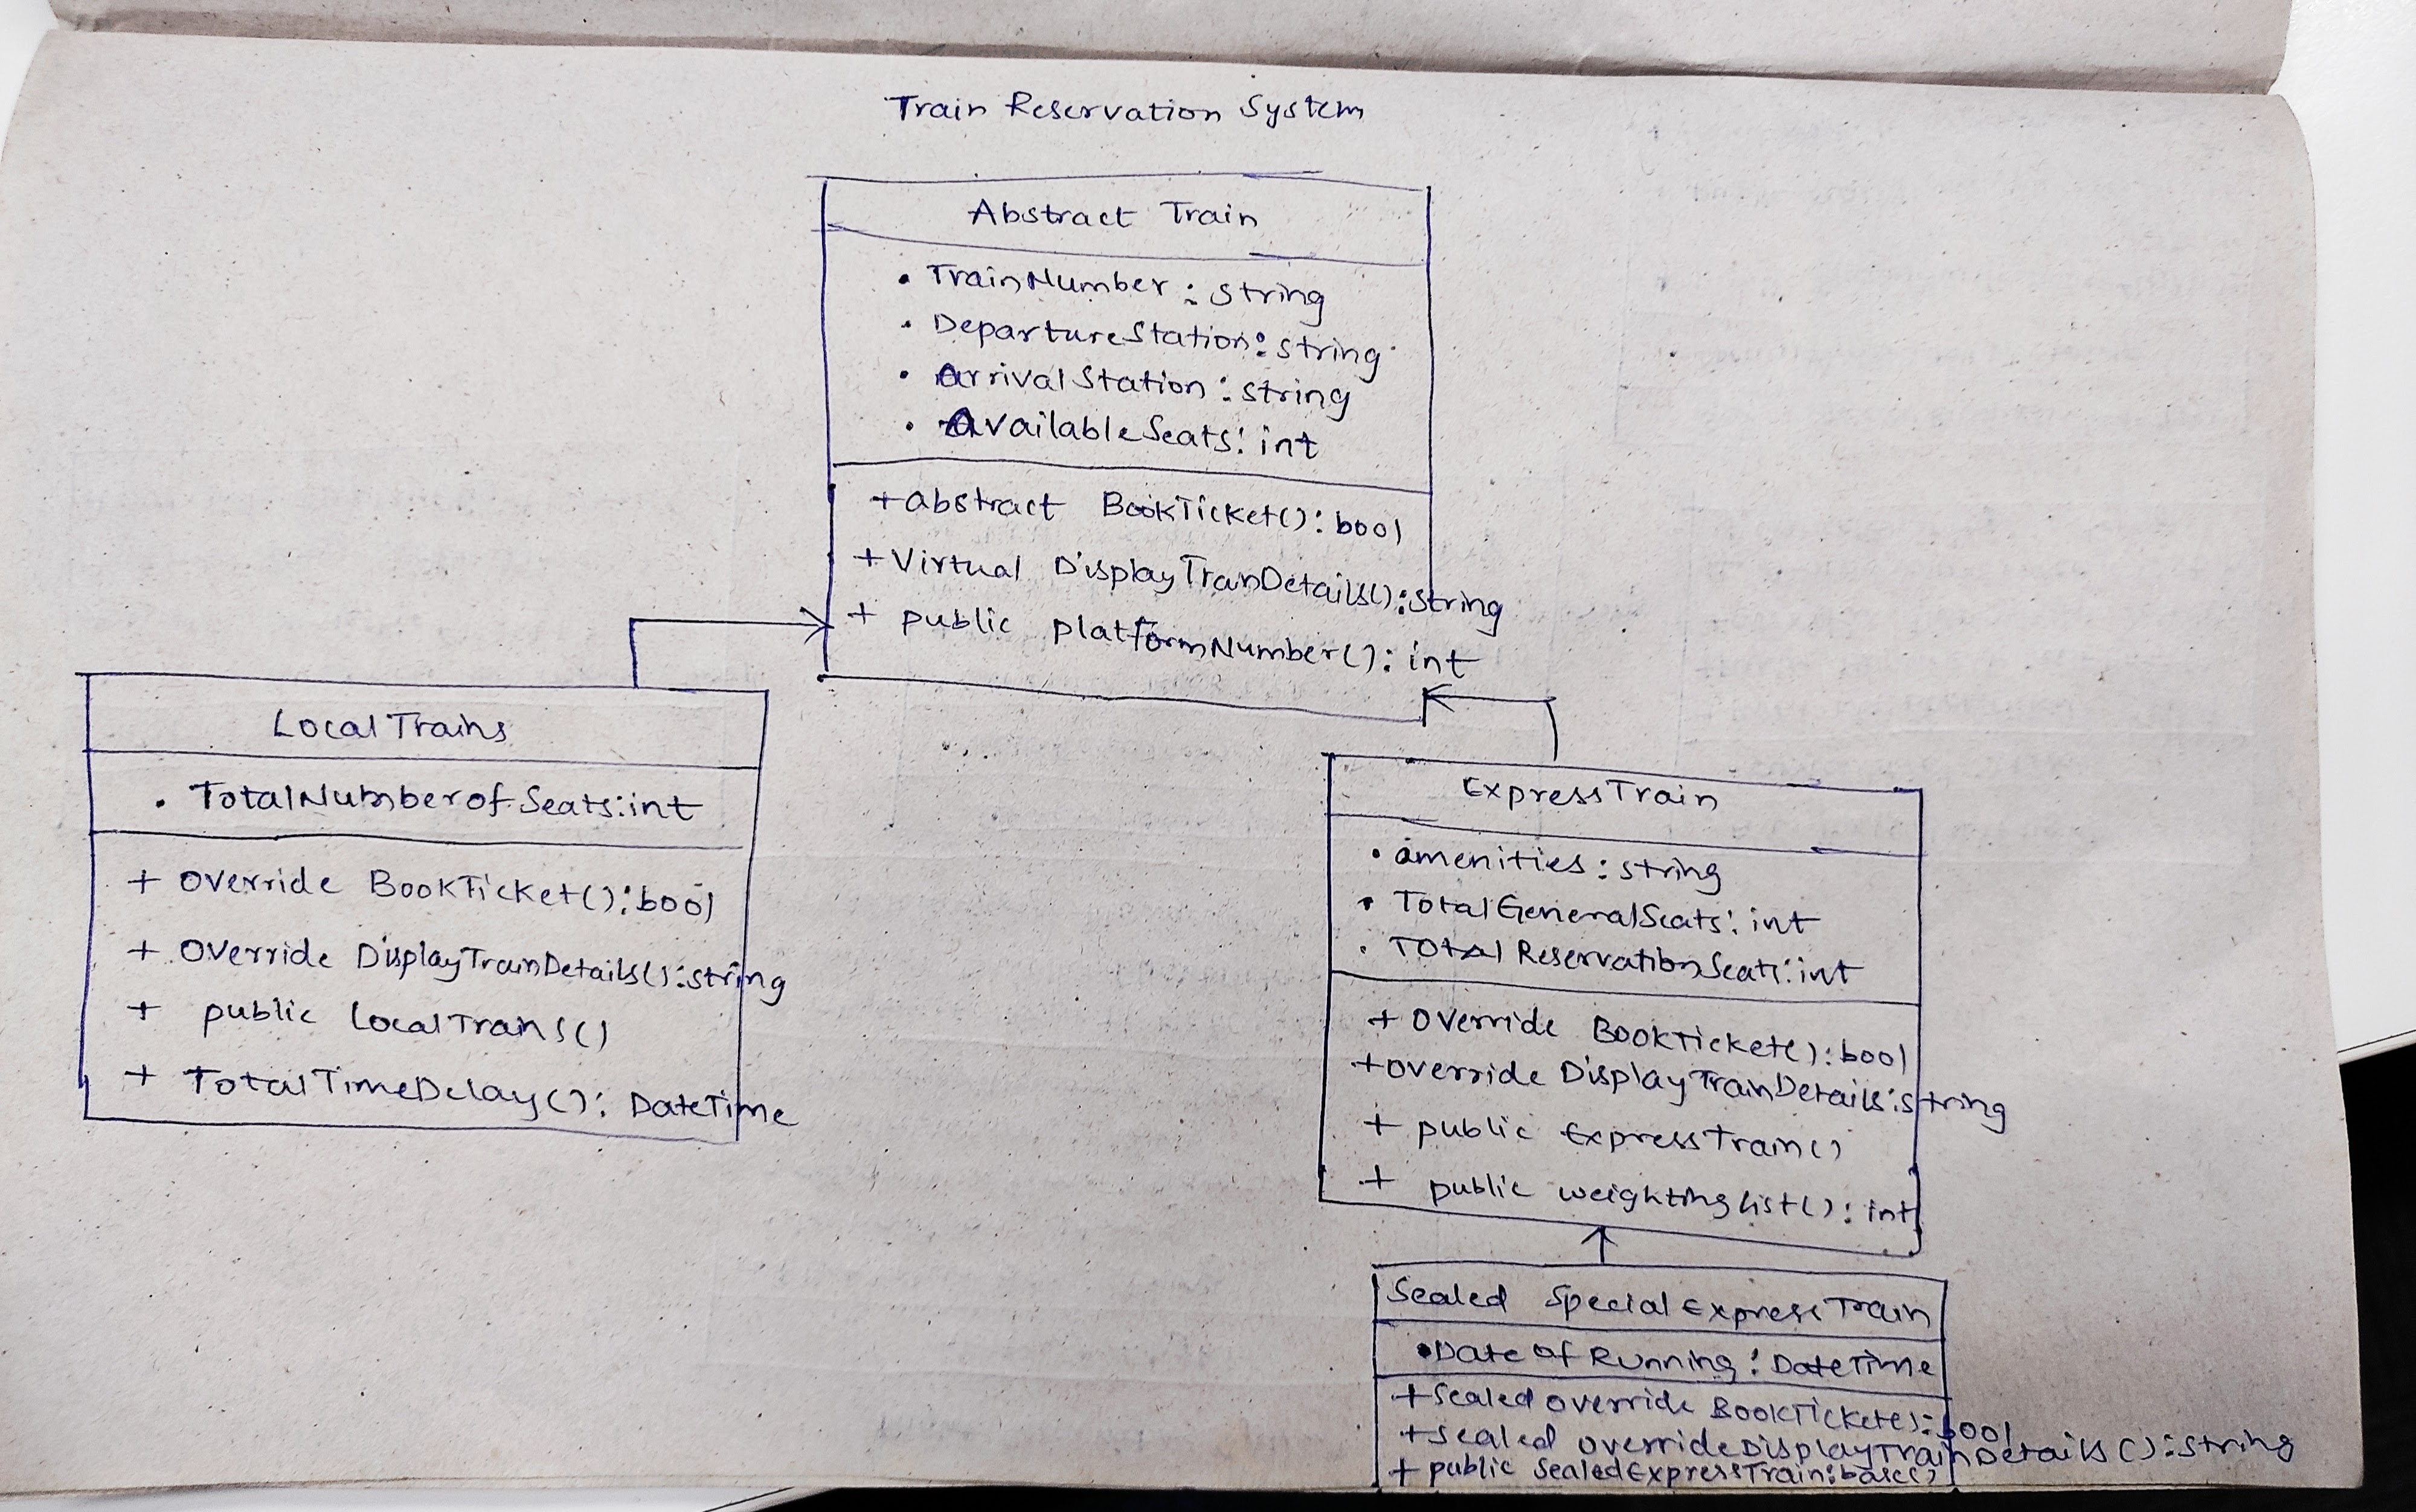 Train Reservation System
Abstract Train
• TrainNumber : string
• DepartureStation: string
• ArrivalStation: string
• AvailableSeats: int
+ abstract BookTicket(): bool
+ Virtual DisplayTrainDetails(): string
+ public platformNumber(): int
LocalTrains
• TotalNumberofSeats: int
+ override BookTicket(): bool
+ Override DisplayTrainDetails(): string
+ public LocalTrains()
+ TotalTimeDelay(): DateTime
ExpressTrain
• amenities: string
• TotalGeneralSeats: int
• TotalReservationSeats: int
+ Override BookTicket(): bool
+ override DisplayTrainDetails: string
+ public ExpressTrain()
+ public weightinglist(): int
Sealed SpecialExpressTrain
• Date of Running: DateTime
+ Sealed override BookTicket(): bool
+ sealed override DisplayTrainDetails(): string
+ public SealedExpressTrain: base()